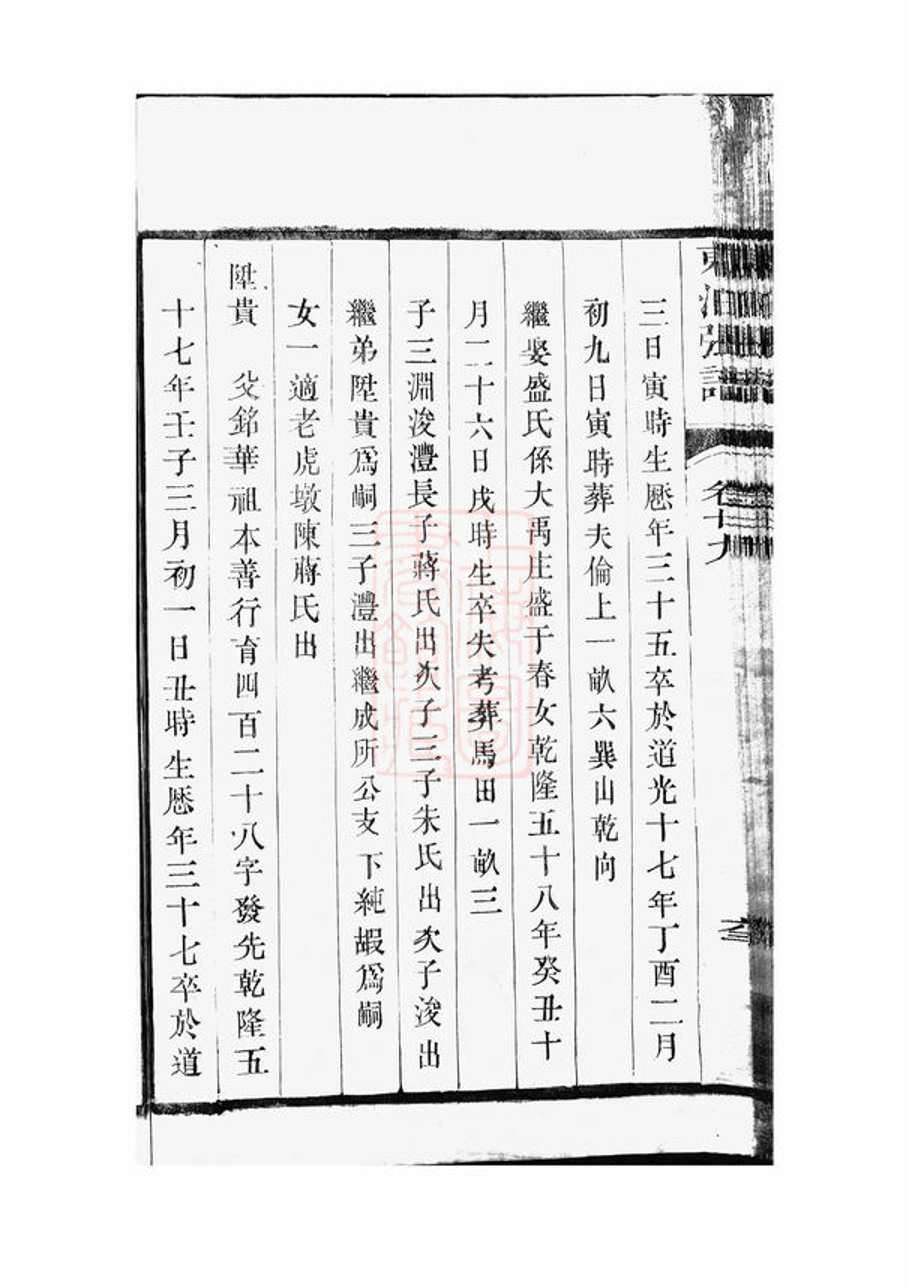 三日寅時生厯年三十五卒於道光十七年丁酉二月
初九日寅時葬夫倫上一畝六巽山乾向
繼娶盛氏係大禹庄盛于春女乾隆五十八年癸丑十
月二十六日戌時生卒失考葬馬田一畝三
子三淵浚灃長子蔣氏出次子三子朱氏出次子浚出
繼弟陞貴爲嗣三子灃出繼成所公支下純嘏爲嗣
女一適老虎墩陳蔣氏出
陞貴 父銘華祖本善行育四百二十八字發先乾隆五
十七年壬子三月初一日丑時生厯年三十七卒於道
卷廿九